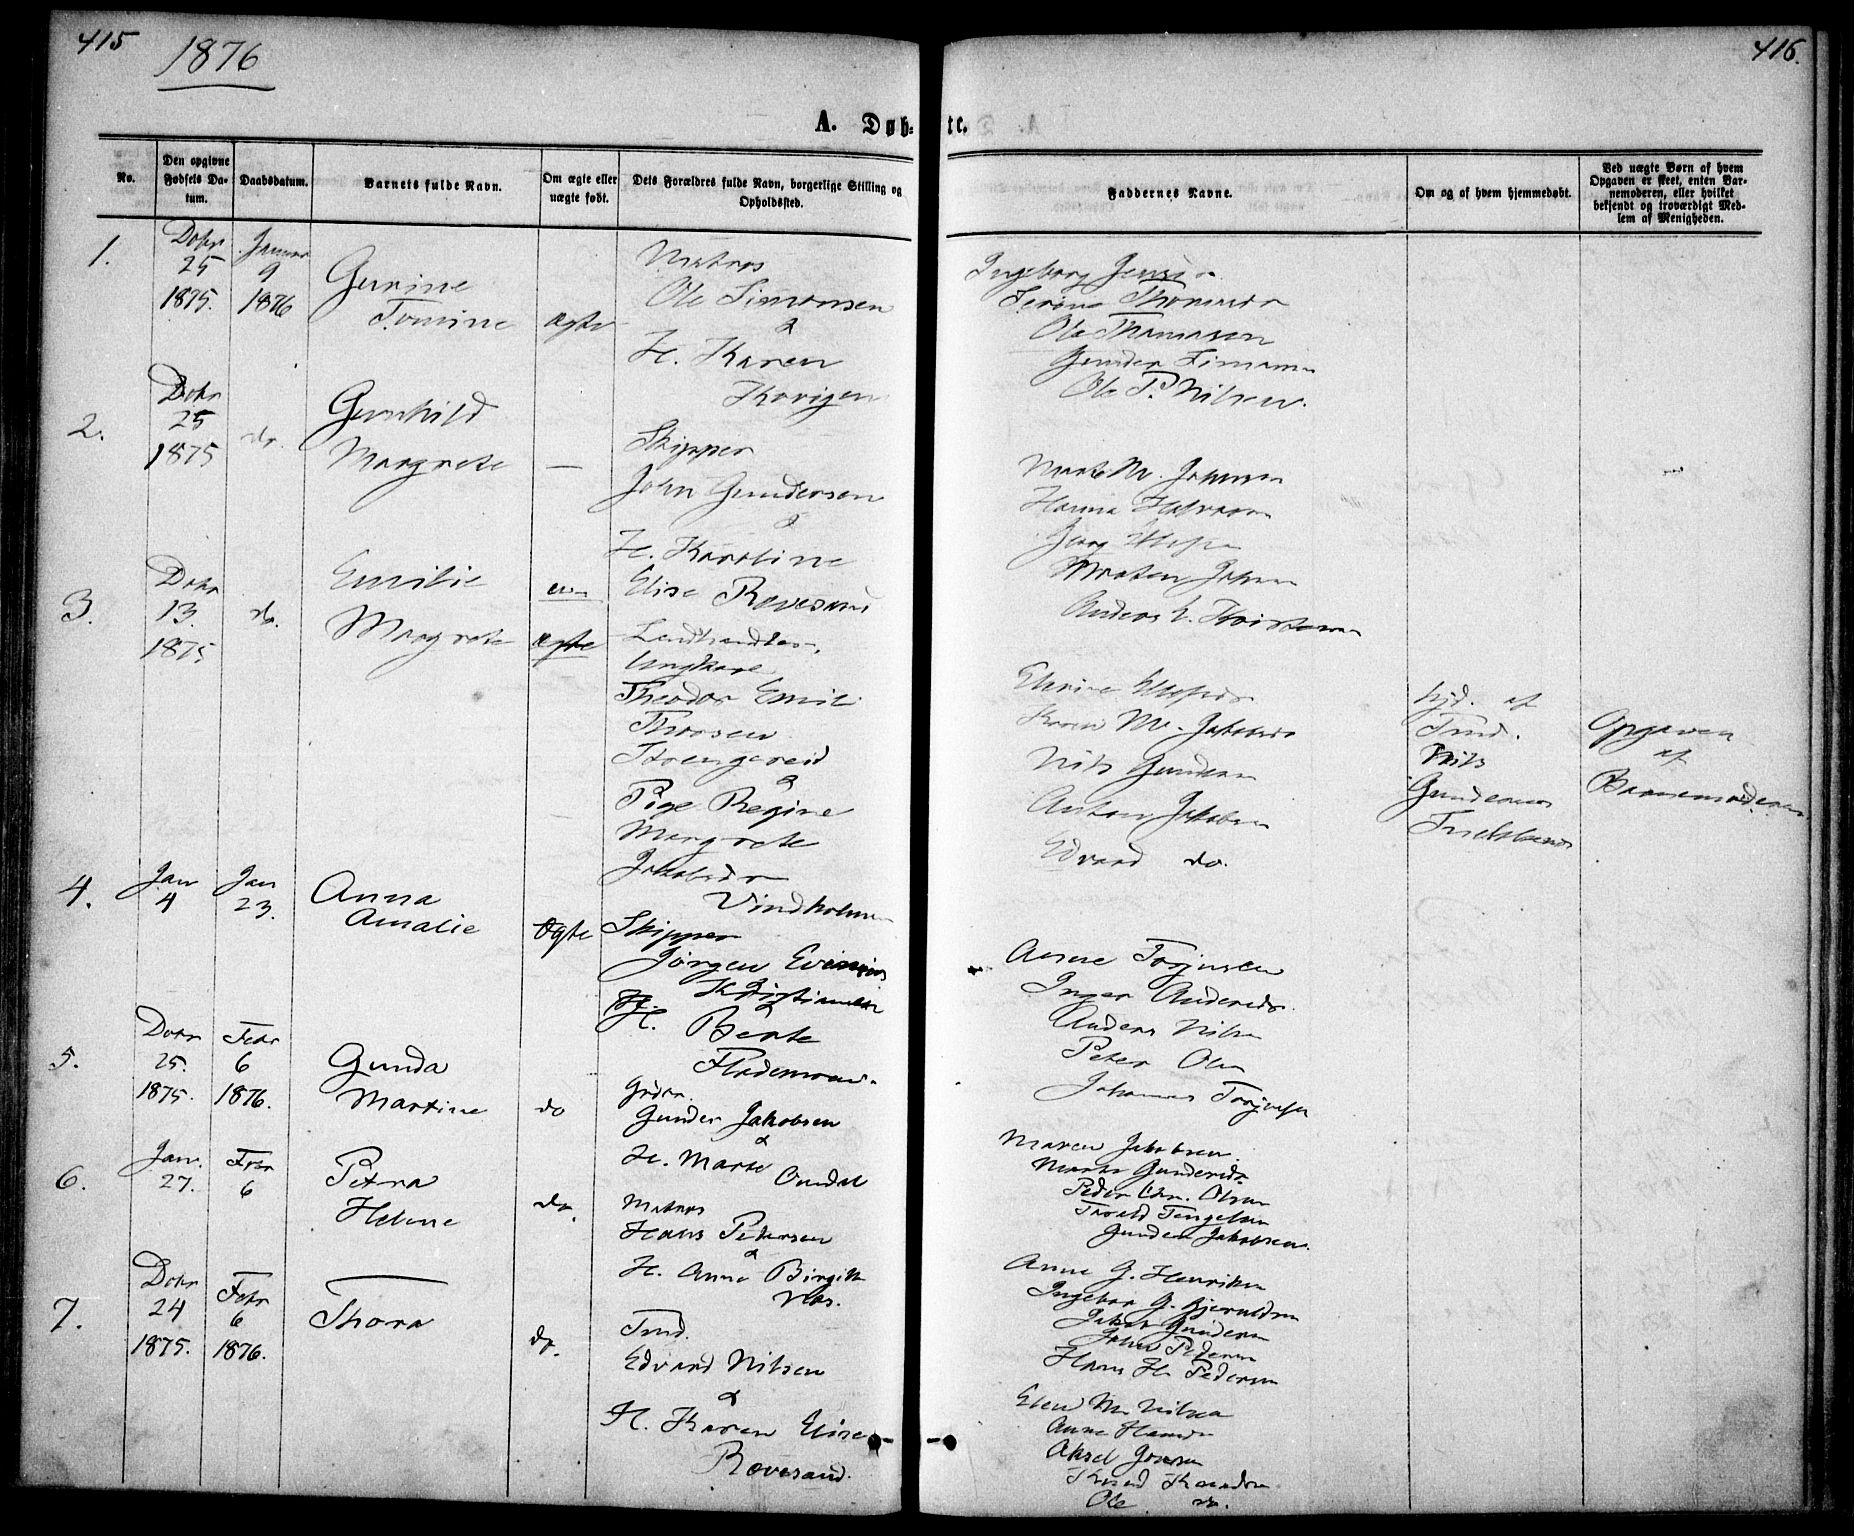 415
1876
A. Døb-
No.
Den opgivne
Fødsels Da-
tum.
Daabsdatum.
Barnets fulde Navn.
Om ægte eller
uægte født.
Dets Forældres fulde Navn, borgerlige Stilling og
Opholdssted.
1.
Dcbr
25
1875.
Januar
9
1876
Gurine
Tomine
ægte
Matros
Ole Simonsen
&
H. Karen
2.
Dcbr
25
1875
do.
Gunhild
Margrete
—
Skipper
John Gundersen
&
H. Karoline
Elise Rævesand
3.
Dcbr
13.
1875
do.
Emilie
Margrete
uægte
Landhandler,
Ungkare
Theodor Emil
Strengereid
&
Pige Regine
Margrete
Jakobsdr
Vindholmen
4.
Jan
4
Jan
23.
Anna
Amalie
Ægte
Skipper
Jørgen
Kristiansen
&
H. Berte
Flademoen.
5.
Dcbr
25.
1875.
Febr
6
1876.
Gunda
Martine
do
Gunder Jakobsen
&
H. Marte
Omdal
6.
Jan.
27.
Febr
6
Petra
Helene
do.
Matros
Hans Petersen
&
H. Anne Birgitte
Næs.
7.
Dcbr
24
1875.
Febr
6
1876.
Thora
do.
Tmd.
Edvard Nilsen
&
H. Karen Elise
Rævesand.
416.
te.
Faddernes Navne.
Om og af hvem hjemmedøbt.
Ved uægte Børn af hvem
Opgaven er skeet, enten Bar-
nemoderen, eller hvilket
bekjendt og troværdigt Med-
lem af Menigheden.
Ingeborg
Ole Thomassen
Gunder
Ole P. Nilsen.
Marte M. Johnsen
Hanna
Morten
Anders L. Kristensen
Karen M. Jakobsdr
Nils Gunders
Anton Jakobsen
Edvard do.
hjd. af
Tmd.
Nils
Gundersen
Opgaven
af
Barnemoderen
Anne Torjusen
Inger Andersdr.
Anders Nilsen
Peter Olsen
Johannes
Maren Jakobsen.
Marte Gundersdr
Peder Chr. Olsen
Gunder Jakobsen.
Anne G. Henriksen
Ingebor G.
Jakob Gundersen
John Pedersen
Hans H. Pedersen
Elen M. Nilsen
Anne
Aksel Jensen
Ole do.